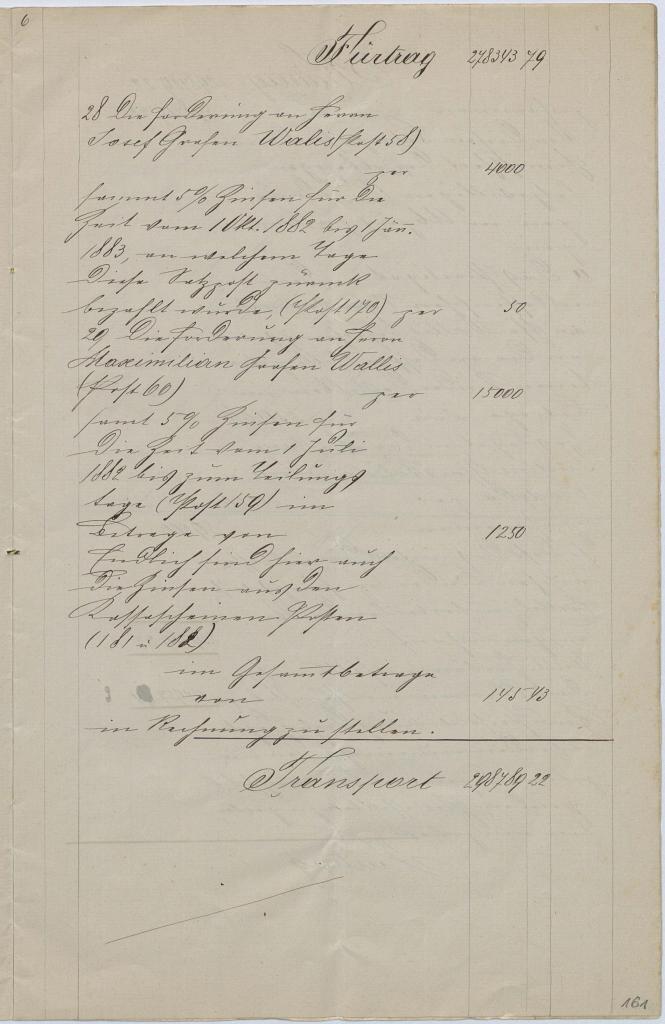 6
Fürtrag 278343 79
28 Die Forderung an Herrn
Josef Grafen Walis (Post 58)
per 4000
sammt 5% Zinsen für die
Zeit vom 1 Okt. 1882 bis 1 Jän.
1883, an welchem Tage
diese Satzpost zurück
bezahlt wurde, (Post 170) per 50
29 Die Forderung an Herrn
Maximilian Grafen Wallis
(Post 60) per 15000
samt 5% Zinsen für
die Zeit vom 1 Juli
1882 bis zum Teilungs
tage (Post 159) im
Betrage von 1250
Endlich sind hier auch
die Zinsen aus den
Kassascheinen Posten
(181 u 182)
im Gesamtbetrage
von 145 43
in Rechnung zu stellen.
Transport 298789 22
161